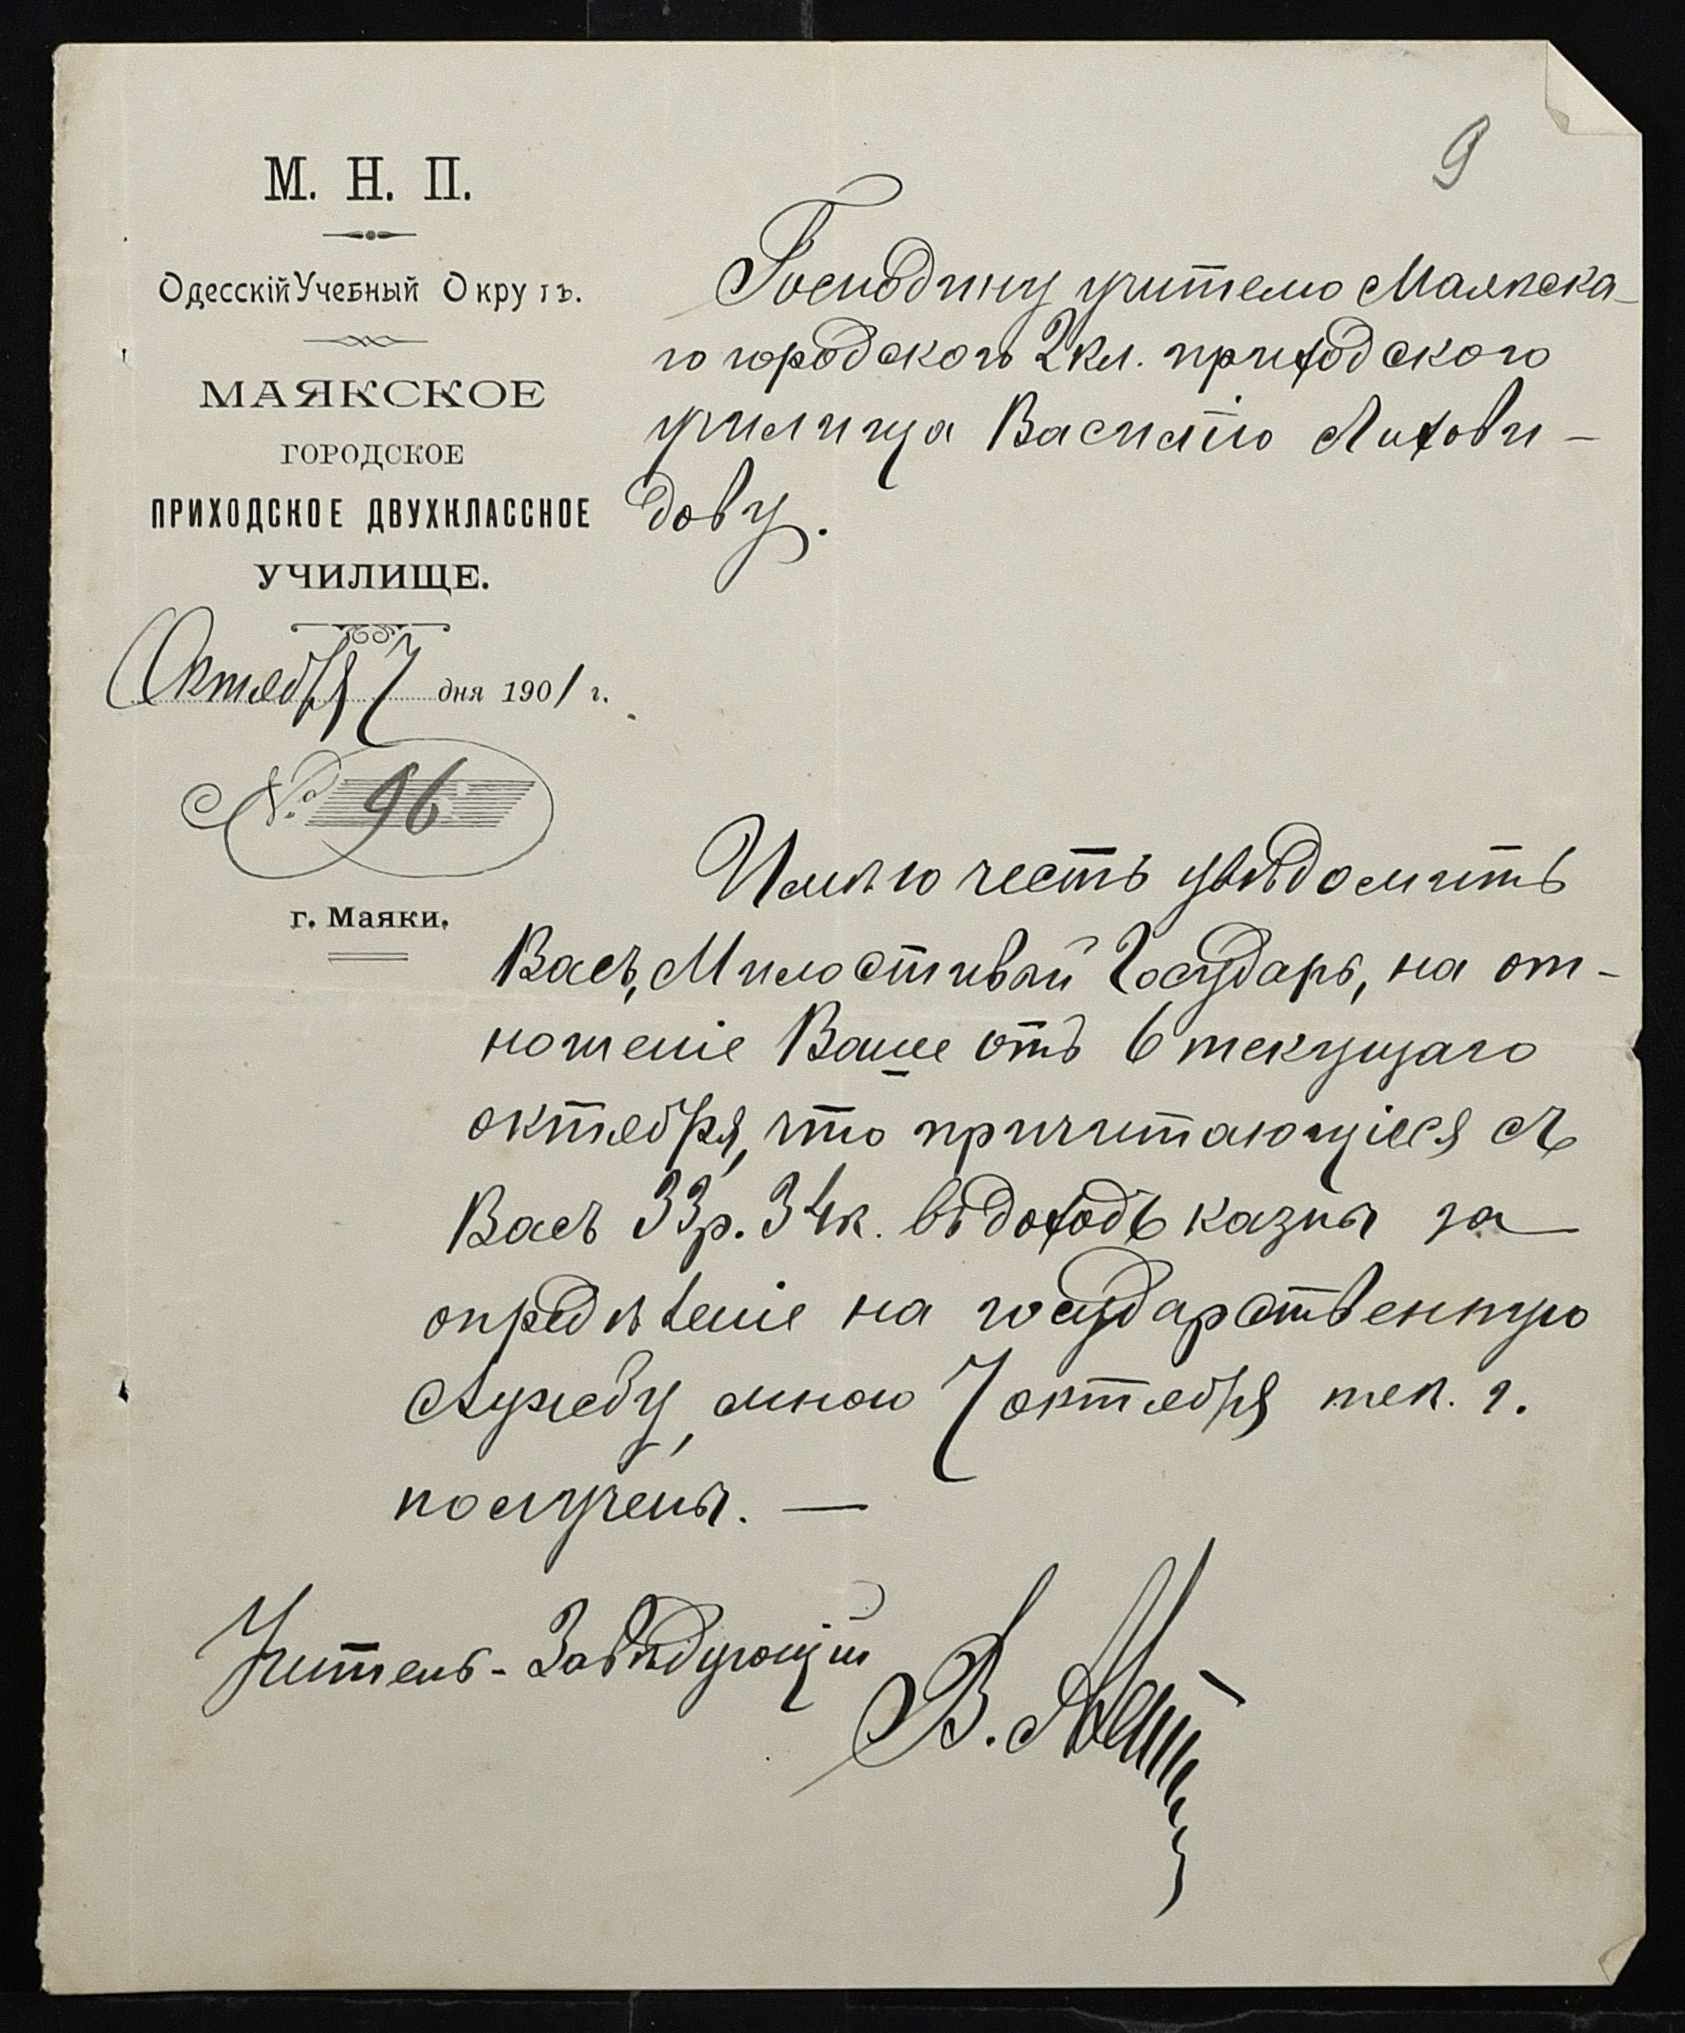 9
М. Н. П.
Одесскій Учебный Округъ.
МАЯКСКОЕ
ГОРОДСКОЕ
ПРИХОДСКОЕ ДВУХКЛАССНОЕ
УЧИЛИЩЕ.
Октября 7 дня 1901 г.
№ 96
г. Маяки.
Господину учителю Маякска-
го городского 2 кл. приходского
училища Василію Лихови-
дову.
Имѣю честь увѣдомить
Васъ, Милостивый Государь, на от-
ношеніе Ваше отъ 6 текущаго
октября, что причитающіеся съ
Васъ 33 р. 34 к. въ доходъ казны за
опредѣленіе на государственную
службу, мною 7 октября тек. г.
получены. —
Учитель-Завѣдующій
В.